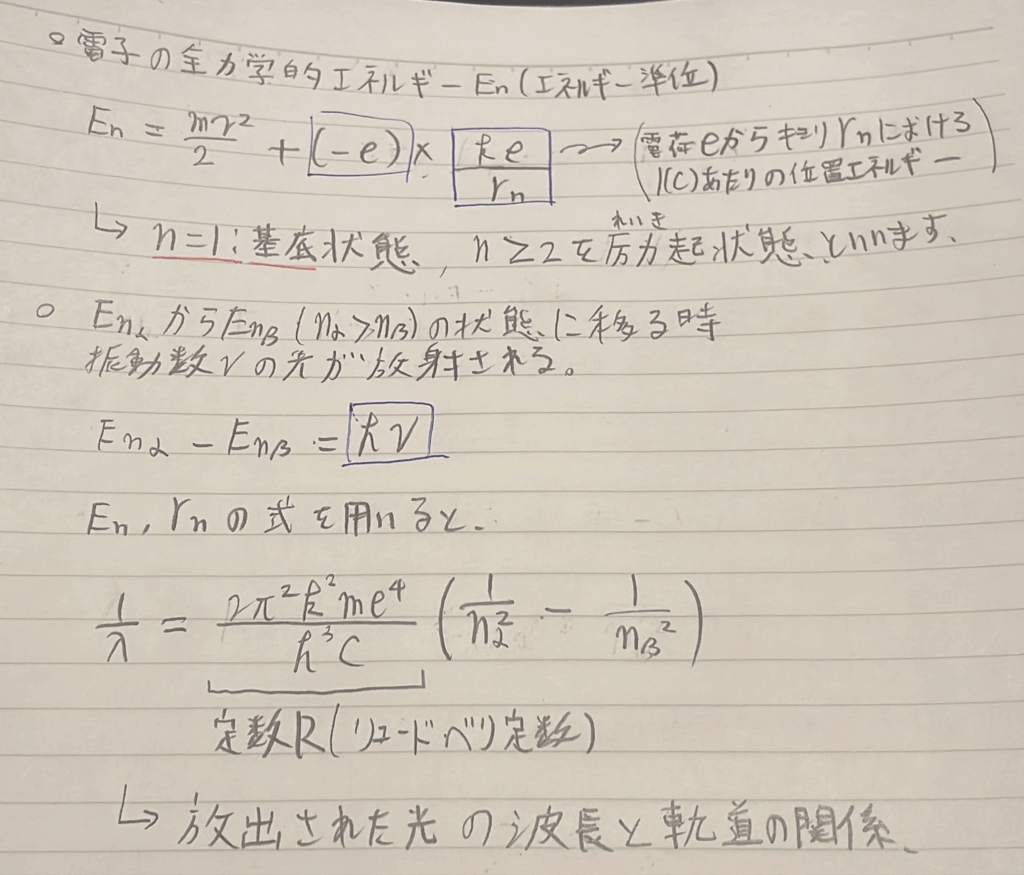 ○ 電子の全力学的エネルギーEn(エネルギー準位)
En = mv²/2 + (-e) × ke/rn → (電荷eからキョリrnにおける1(C)あたりの位置エネルギー)
↳ n=1:基底状態, n≥2を励起状態といいます、
れいき
○ Enαから Enβ (nα>nβ)の状態に移る時
振動数νの光が放射される。
Enα - Enβ = hν
En, rnの式を用いると、
1/λ = 2π²k²me⁴/h³c (1/nα² - 1/nβ²)
定数R(リュードベリ定数)
↳ 放出された光の波長と軌道の関係、